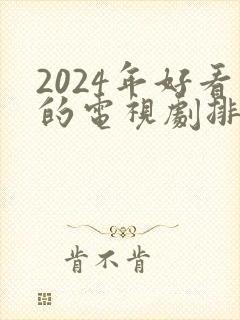 2024年好看
的電視劇排
肯不肯